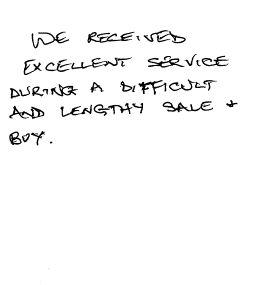 WE RECEIVED
EXCELLENT SERVICE
DURING A DIFFICULT
AND LENGTHY SALE +
BUY.